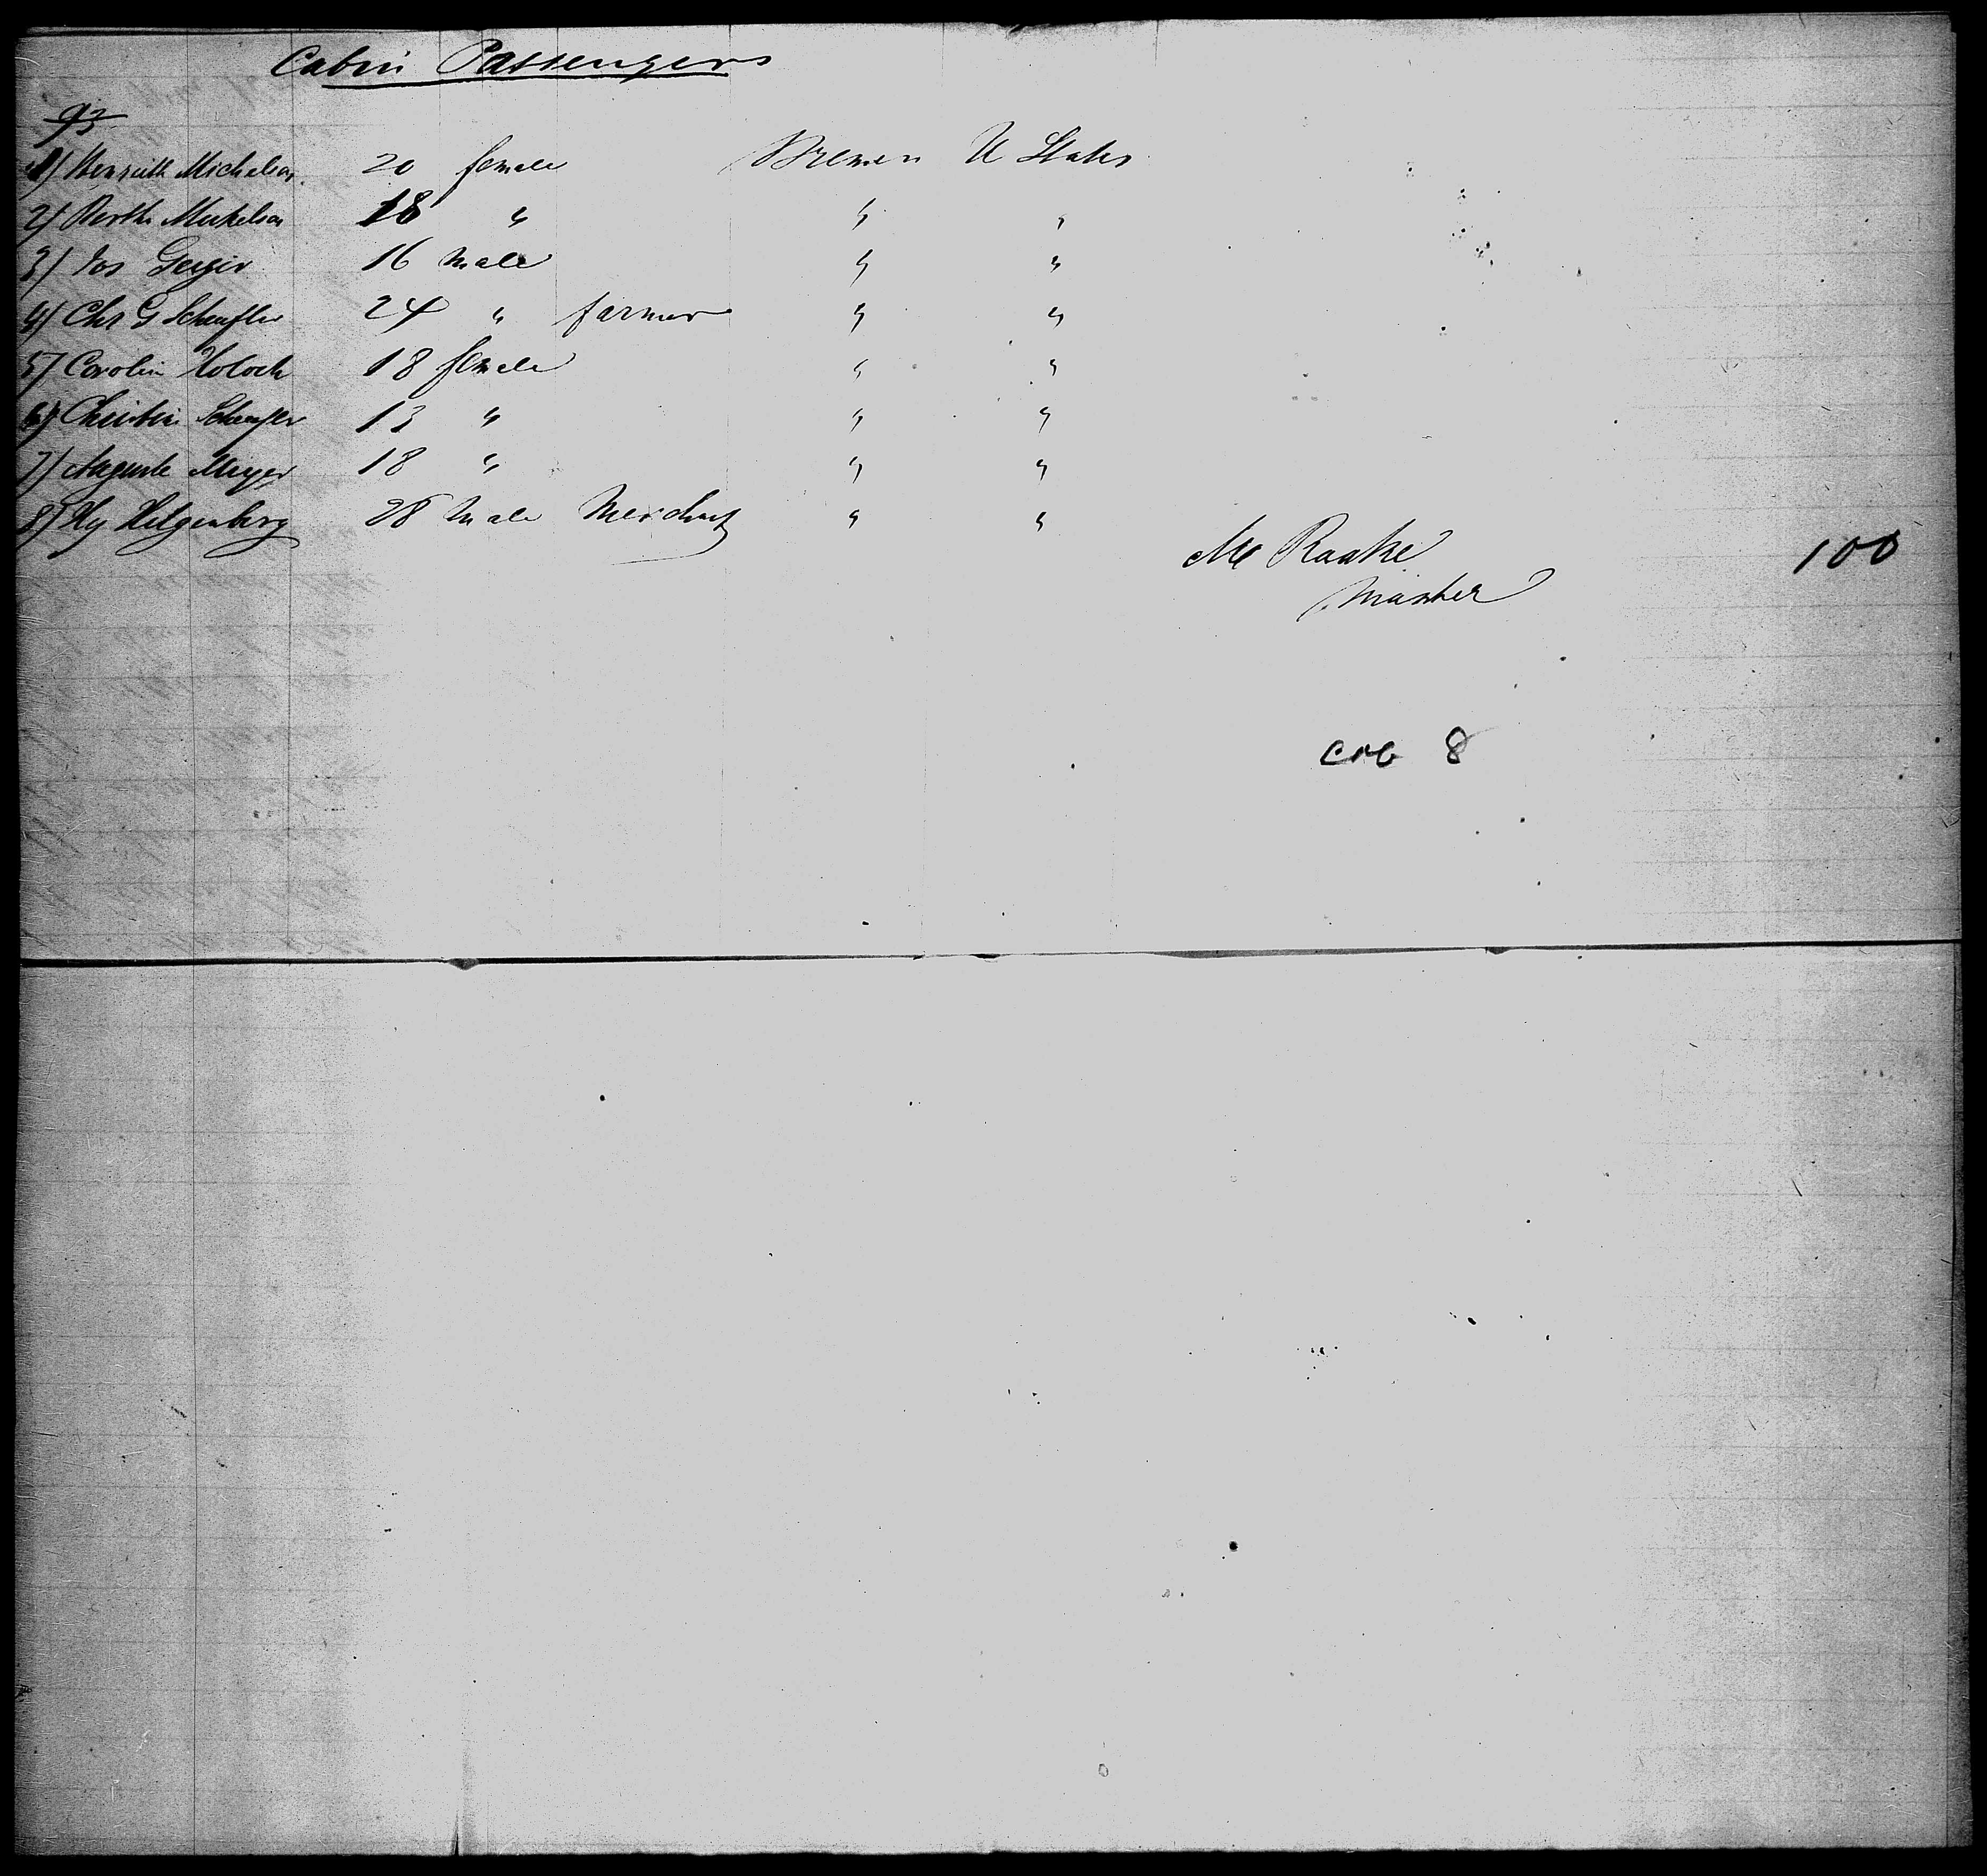 Cabin Passengers
93
1) Henriette Michelson 20 female Bremen U States
2) Berth Michelson 18 " " "
3) Jos Geyer 16 male " "
4) Chr G Scheufler 24 " farmer " "
5) Carolin Holoch 18 female " "
6) Christin Scheufler 13 " " "
7) Auguste Meyer 18 " " "
8) Hy Hilgenberg 28 male Merchant " "
Raake
Master
100
8